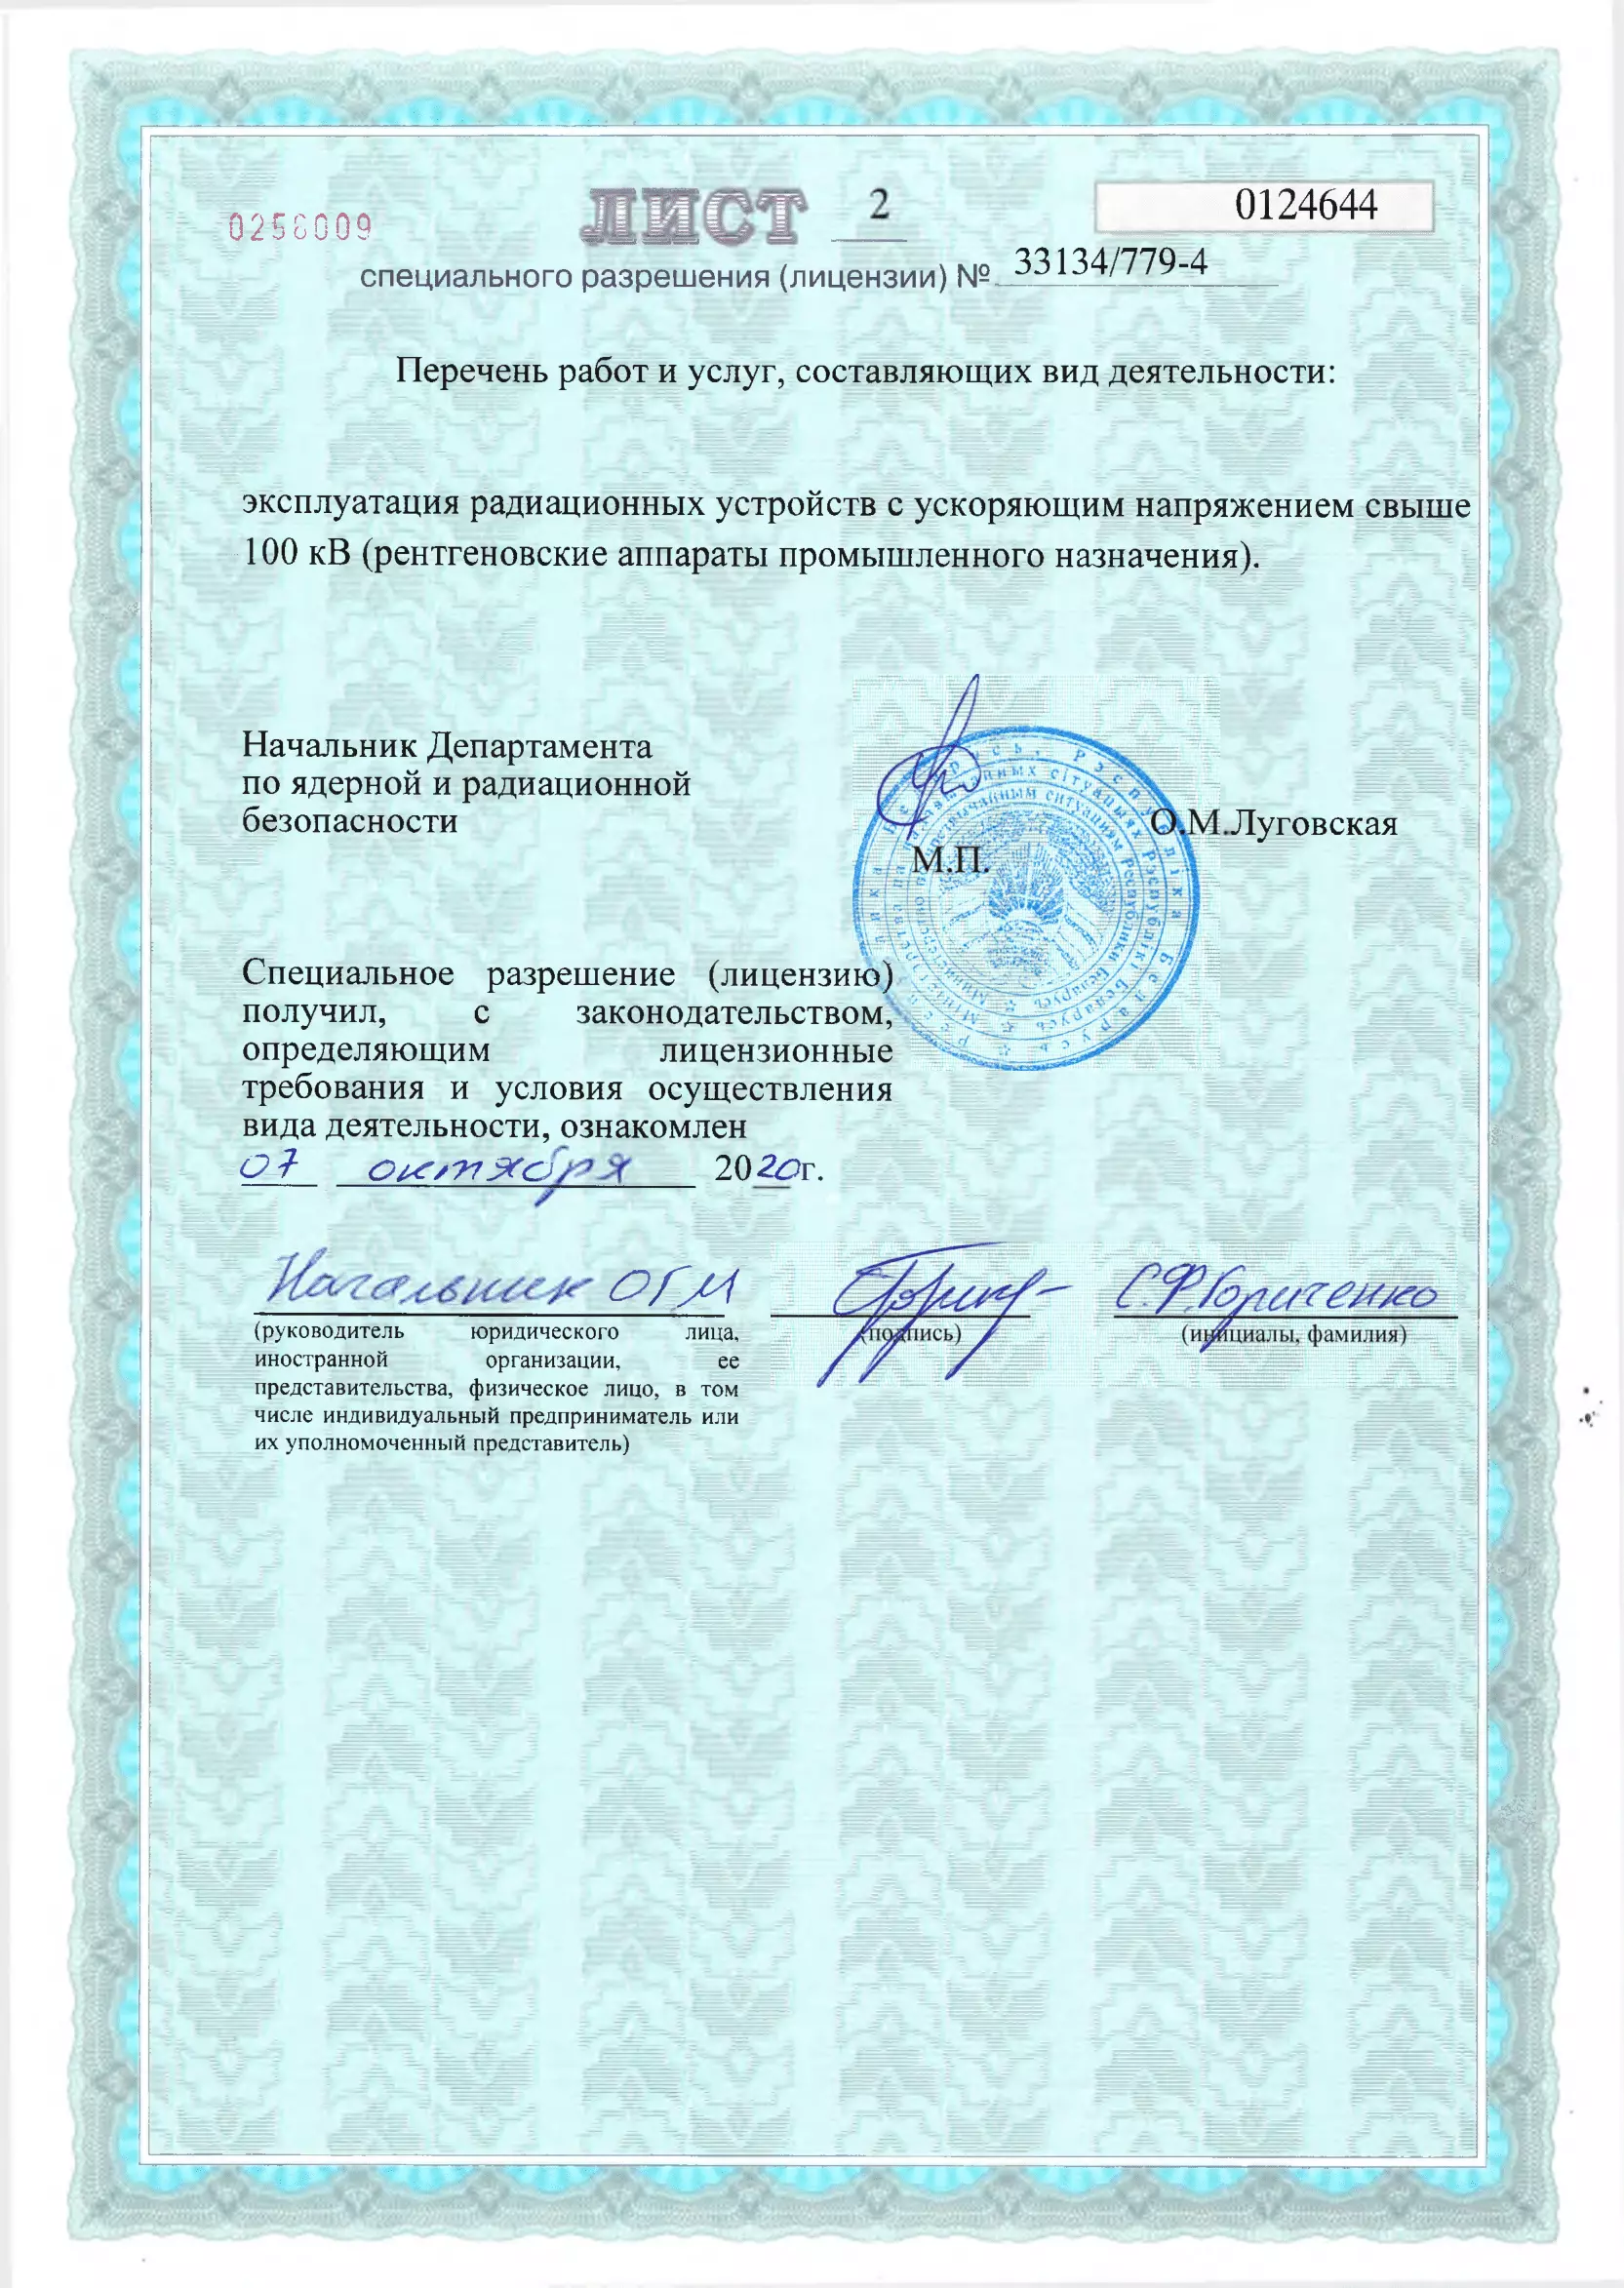 ЛИСТ 2
0124644
специального разрешения (лицензии) № 33134/779-4
Перечень работ и услуг, составляющих вид деятельности:
эксплуатация радиационных устройств с ускоряющим напряжением свыше
100 кВ (рентгеновские аппараты промышленного назначения).
Начальник Департамента
по ядерной и радиационной
безопасности
О.М.Луговская
М.П.
Специальное разрешение (лицензию)
получил, с законодательством,
определяющим лицензионные
требования и условия осуществления
вида деятельности, ознакомлен
07 октября 2020г.
Начальник ОГМ
(руководитель юридического лица,
иностранной организации, ее
представительства, физическое лицо, в том
числе индивидуальный предприниматель или
их уполномоченный представитель)
(подпись)
С.Ф.
(инициалы, фамилия)